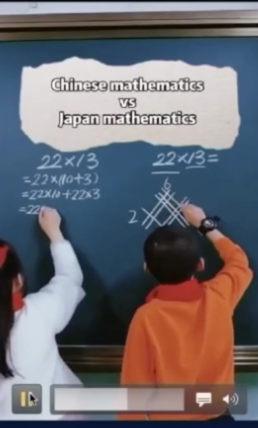 Chinese mathematics
vs
Japan mathematics
22×13
=22×(10+3)
=22×10+22×3
=220
22×13=
6
2